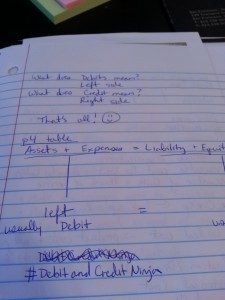 What does Debits mean?
Left side
What does Credit mean?
Right side
That's all!
p4 table
Assets + Expenses = Liability + Equit
left =
usually Debit us
# Debit and Credit Ninja